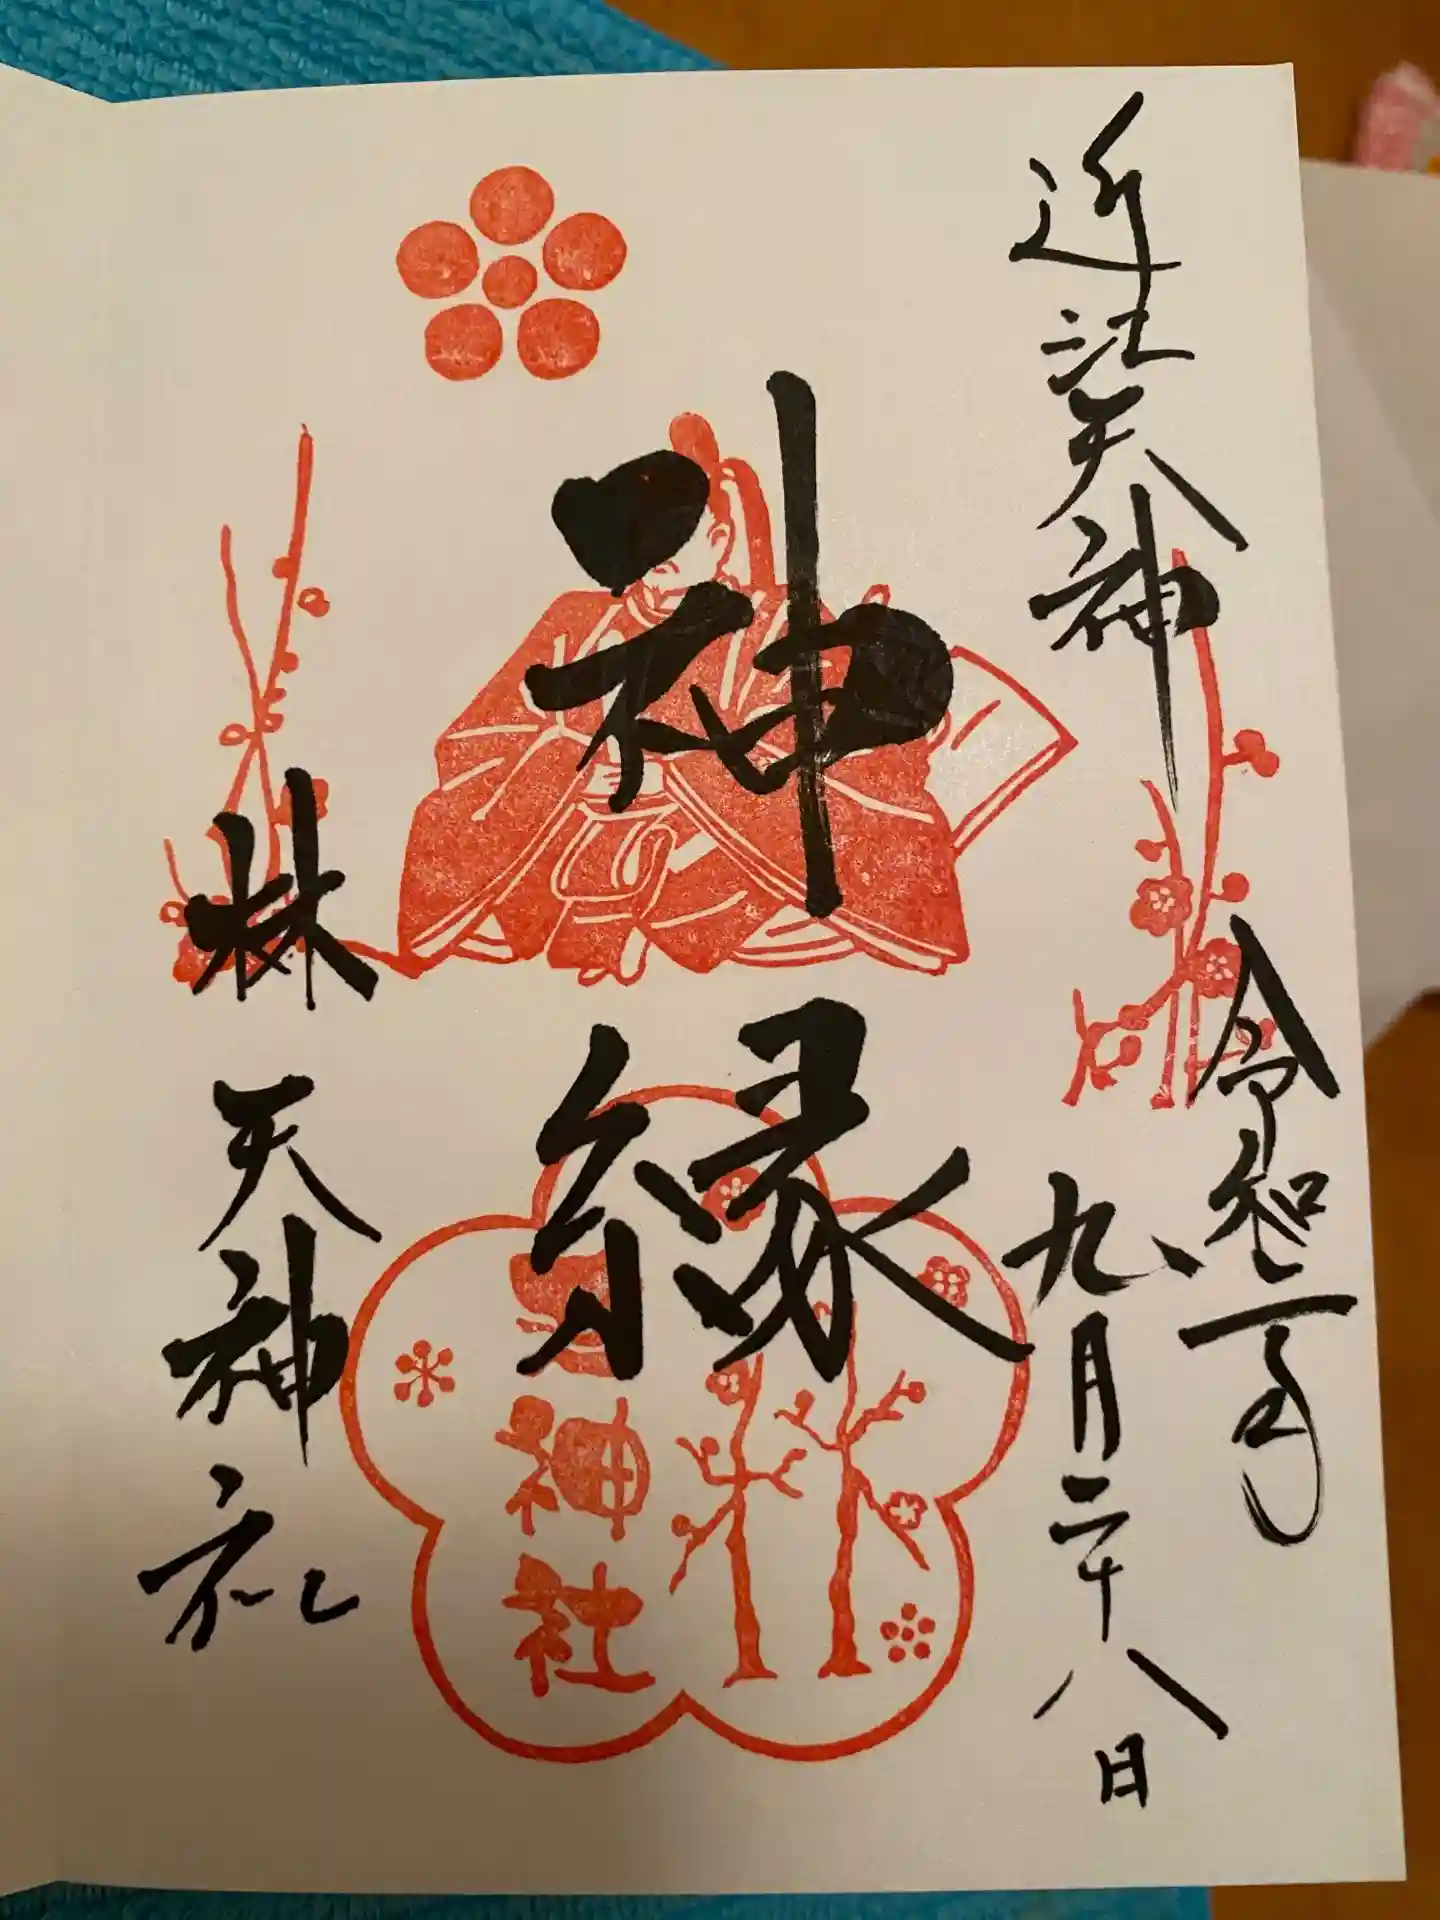 近江天神
令和
九月二十八日
神縁
林天神社
神社